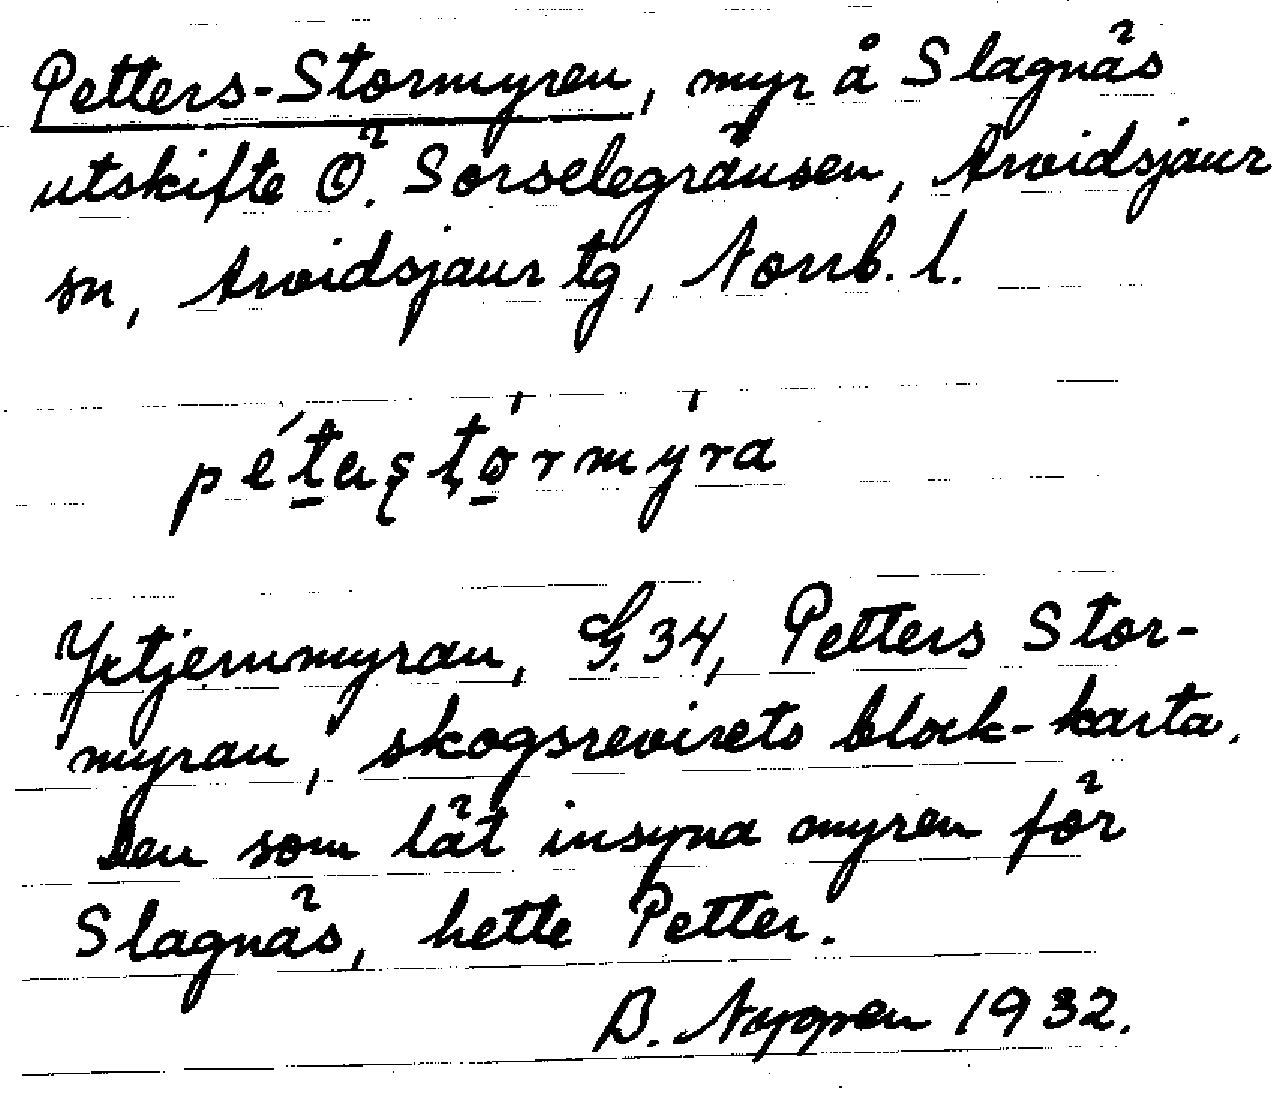 Petters-Stormyren, myr å Slagnäs
utskifte Ö. Sorselegränsen, Arvidsjaur
sn, Arvidsjaur tg, Norrb. l.
pétaştórmýra
Yttjernmyran, G.34, Petters Stor-
myran, skogsrevirets block-karta.
Den som lät insyna myren för
Slagnäs, hette Petter.
B. Nygren 1932.